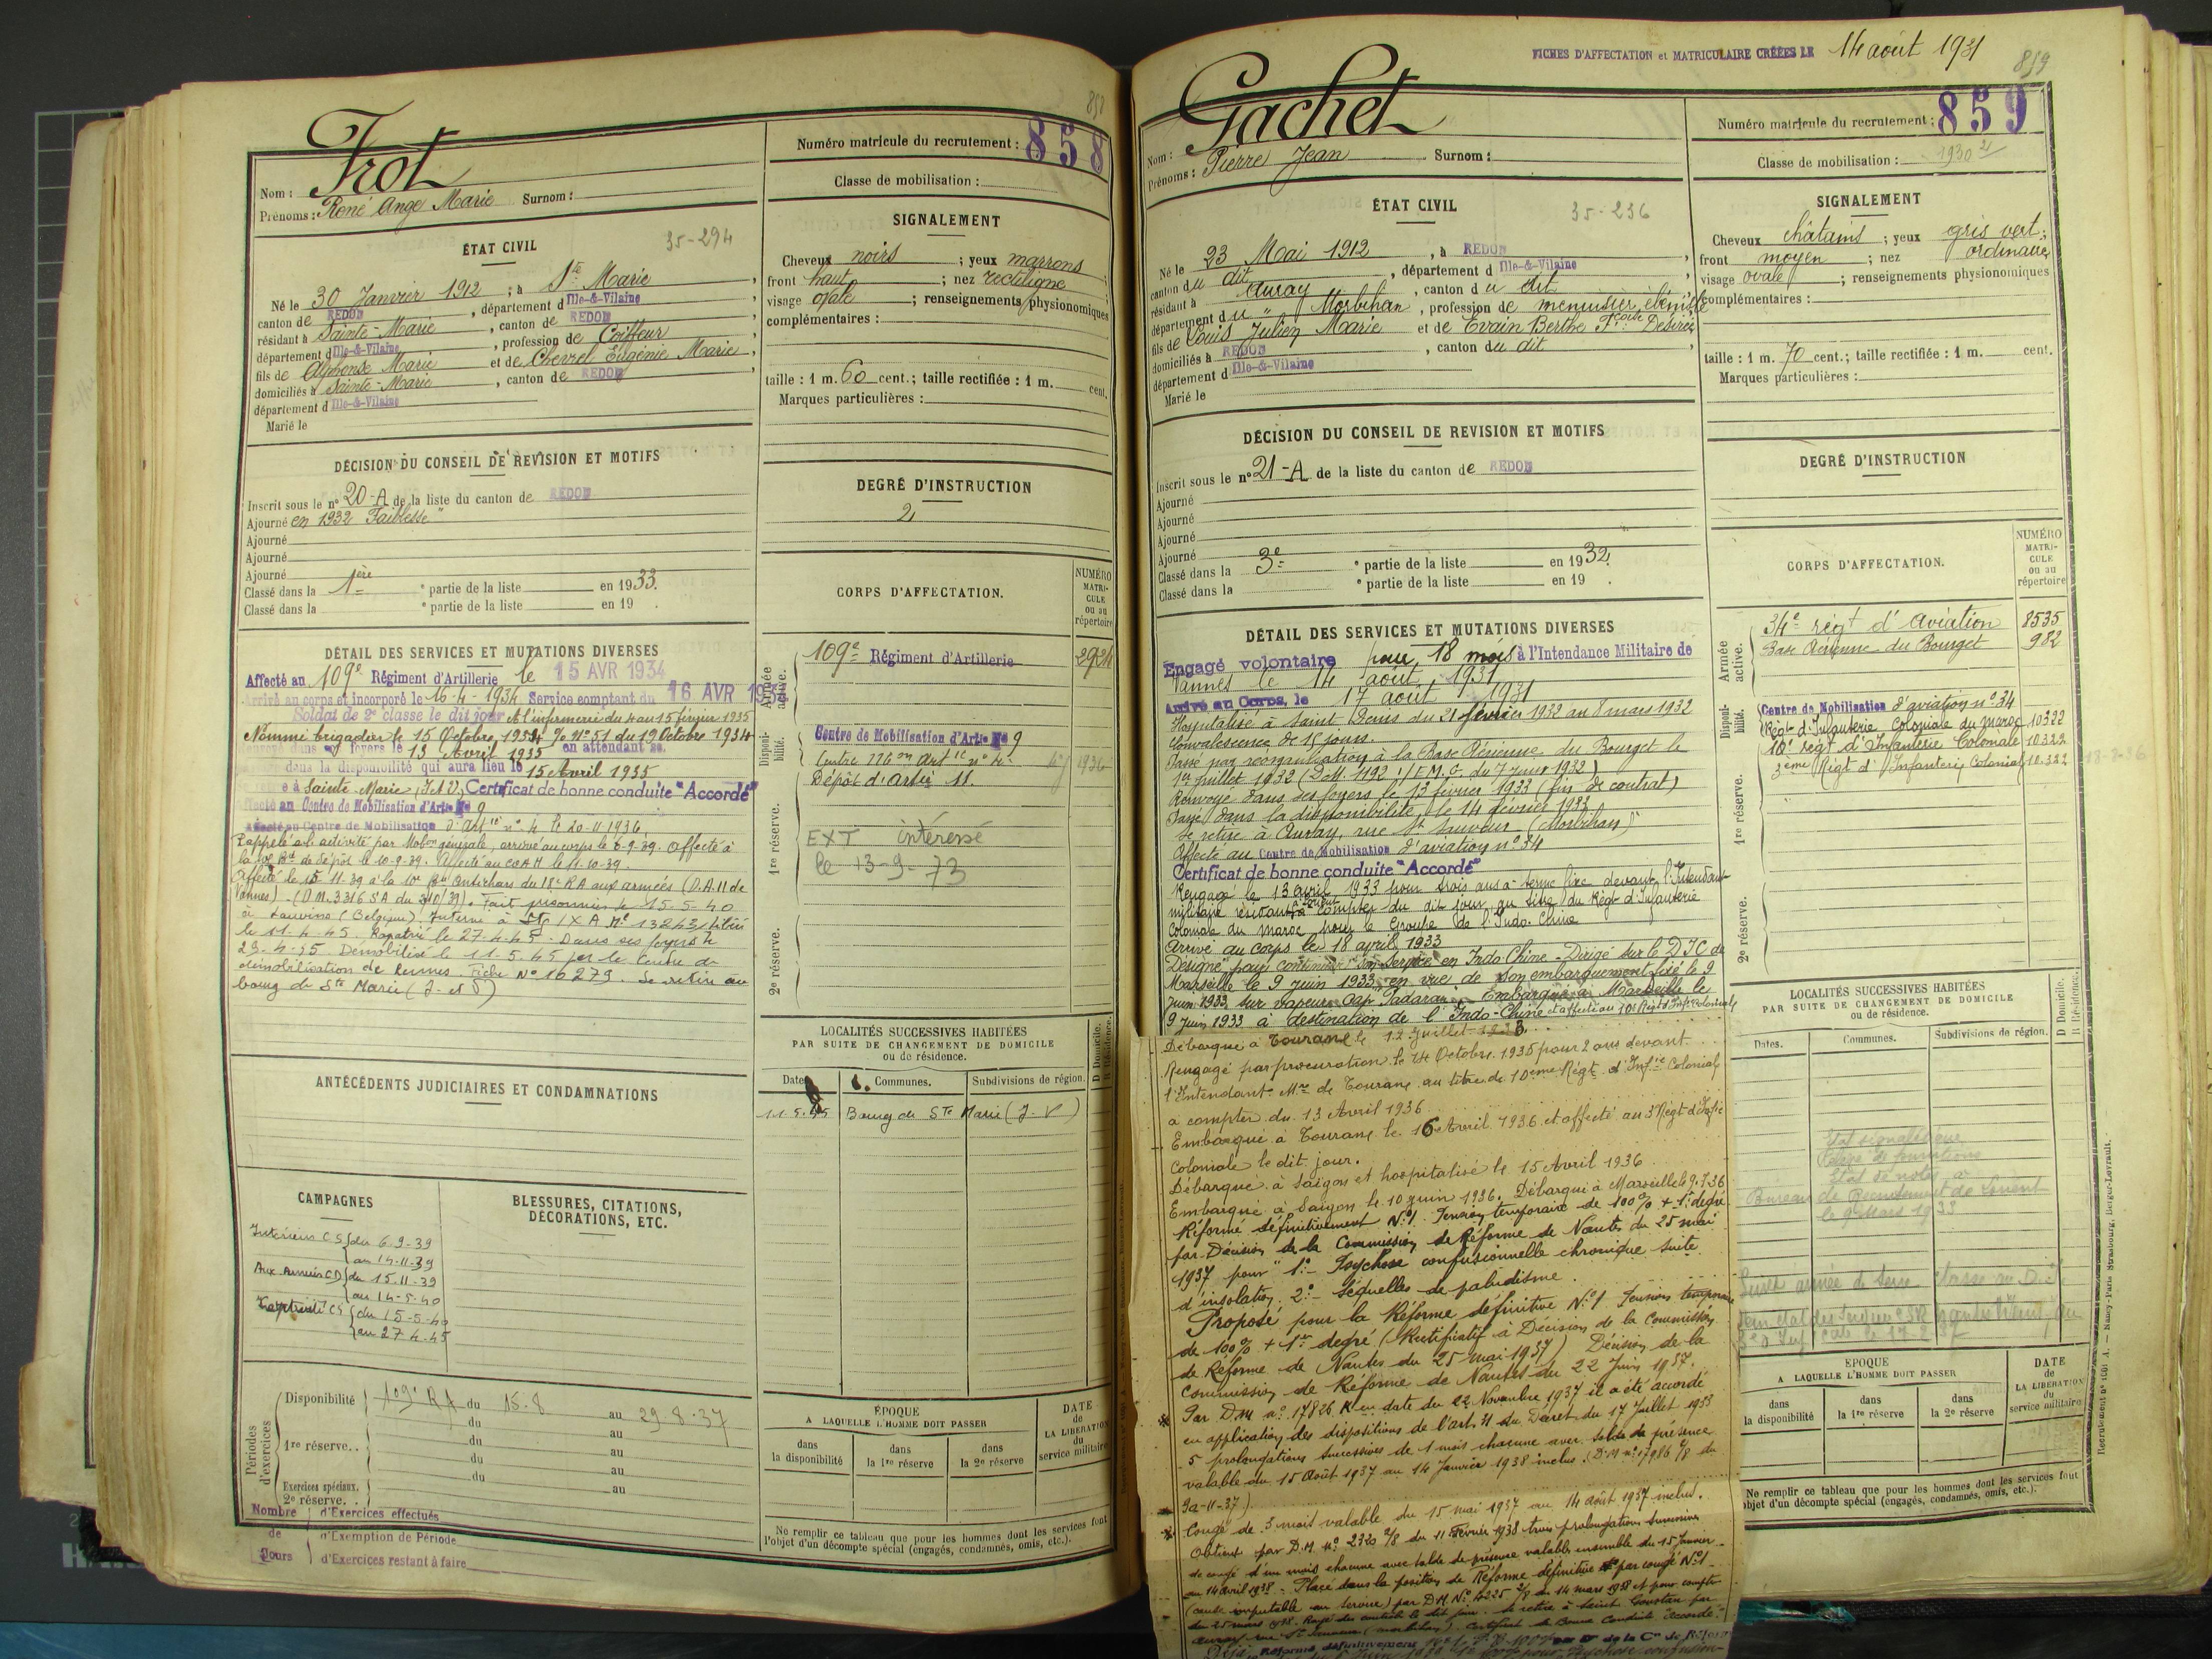 858
Frot
Nom :
Prénoms : René Ange Marie Surnom :
Numéro matricule du recrutement : 858
Classe de mobilisation :
ÉTAT CIVIL
35-294
Né le 30 Janvier 1912 ; à Ste Marie ,
canton de REDON , département d Ille-&-Vilaine ,
résidant à Sainte-Marie , canton de REDON ,
département d Ille-&-Vilaine , profession de Coiffeur ,
fils de Alphonse Marie et de Chevrel Eugénie Marie ,
domiciliés à Sainte-Marie , canton de REDON ,
département d Ille-&-Vilaine
Marié le
SIGNALEMENT
Cheveux noirs ; yeux marrons ;
front haut ; nez rectiligne ;
visage ovale ; renseignements physionomiques
complémentaires :
taille : 1 m. 60 cent.; taille rectifiée : 1 m. cent.
Marques particulières :
DÉCISION DU CONSEIL DE REVISION ET MOTIFS
Inscrit sous le n° 20-A de la liste du canton de REDON
Ajourné en 1932 "Faiblesse"
Ajourné
Ajourné
Ajourné
Classé dans la 1ère ° partie de la liste en 1933.
Classé dans la ° partie de la liste en 19 .
DEGRÉ D'INSTRUCTION
2
CORPS D'AFFECTATION.
NUMÉRO MATRI-CULE ou au répertoire
Armée active.
109e Régiment d'Artillerie 2924
Disponibilité.
Centre de Mobilisation d'Artie N° 9
Centre mob on Art ie n° 4
Dépôt d'artie 11.
1re réserve.
EXT intéressé
le 13-9-73
2e réserve.
DÉTAIL DES SERVICES ET MUTATIONS DIVERSES
Affecté au 109e Régiment d'Artillerie le 15 AVR 1934
Arrivé au corps et incorporé le 16-4-1934 Service comptant du 16 AVR 1934
Soldat de 2e classe le dit jour A l'infirmerie du 4 au 15 février 1935
Nommé brigadier le 15 Octobre 1934 % N° 51 du 19 Octobre 1934
dans ses foyers le 13 Avril 1935 en attendant sa
dans la disponibilité qui aura lieu le 15 Avril 1935
à Sainte-Marie (I et V) Certificat de bonne conduite "Accordé"
Affecté au Centre de Mobilisation d'Artie N° 9
Affecté au Centre de Mobilisation d'Art ie n° 4 le 20-11-1936
Rappelé à l'activité par Mob on générale, arrivé au corps le 6-9-39. Affecté à
la Bie de dépôt le 10-9-39. Affecté au COAM le 11-10-39
Affecté le 15-11-39 à la 10e Bie Antichars du 18e RA aux armées (D.A. 11 de
Vannes) - (D.M. 3316 SA du 2/10/39). Fait prisonnier le 15-5-40
à Louvine (Belgique). Interné à Stg IX A N° 13243, libéré
le 11.4.45. Rapatrié le 27.4.45. Dans ses foyers le
29-4-45. Démobilisé le 11.5.45 par le Centre de
démobilisation de Rennes. Fiche N° 16279. Se retire au
bourg de Ste Marie (I. et V)
ANTÉCÉDENTS JUDICIAIRES ET CONDAMNATIONS
LOCALITÉS SUCCESSIVES HABITÉES
PAR SUITE DE CHANGEMENT DE DOMICILE
ou de résidence.
D Domicile. R Résidence.
Dates. Communes. Subdivisions de région.
11.5.45 Bourg de Ste Marie (I-V)
CAMPAGNES
Intérieur CS du 6-9-39
au 14-11-39
Aux Armées CD du 15.11-39
au 14-5-40
Captivité CS du 15-5-40
au 27.4.45
BLESSURES, CITATIONS,
DÉCORATIONS, ETC.
Périodes d'exercices
Disponibilité 109e RA du 15.8 au 29.8.37
du au
1re réserve.. du au
du au
du au
Exercices spéciaux.
2e réserve. . au
Nombre de Jours
d'Exercices effectués
d'Exemption de Période
d'Exercices restant à faire
ÉPOQUE
A LAQUELLE L'HOMME DOIT PASSER
dans la disponibilité
dans la 1re réserve
dans la 2e réserve
DATE de LA LIBÉRATION du service militaire
Ne remplir ce tableau que pour les hommes dont les services font
l'objet d'un décompte spécial (engagés, condamnés, omis, etc.).
FICHES D'AFFECTATION et MATRICULAIRE CRÉÉES LE 14 août 1931
859
Gachet
Nom :
Prénoms : Pierre Jean Surnom :
Numéro matricule du recrutement : 859
Classe de mobilisation : 1930
ÉTAT CIVIL
35-236
Né le 23 Mai 1912 , à REDON ,
canton du dit , département d Ille-&-Vilaine ,
résidant à Auray , canton du dit ,
département du Morbihan , profession de menuisier ébéniste
fils de Louis Julien Marie et de Evain Berthe Fçoise Désirée
domiciliés à REDON , canton du dit ,
département d Ille-&-Vilaine
Marié le
SIGNALEMENT
Cheveux châtains ; yeux gris vert ;
front moyen ; nez ordinaire
visage ovale ; renseignements physionomiques
complémentaires :
taille : 1 m. 70 cent.; taille rectifiée : 1 m. cent.
Marques particulières :
DÉCISION DU CONSEIL DE REVISION ET MOTIFS
Inscrit sous le n° 21-A de la liste du canton de REDON
Ajourné
Ajourné
Ajourné
Ajourné
Classé dans la 3e ° partie de la liste en 1932.
Classé dans la ° partie de la liste en 19 .
DEGRÉ D'INSTRUCTION
CORPS D'AFFECTATION.
NUMÉRO MATRI-CULE ou au répertoire
Armée active.
34e régt d'aviation 8535
Base Aérienne du Bourget 982
Disponibilité.
Centre de Mobilisation d'aviation n° 34
Régt d'Infanterie Coloniale du Maroc 10322
10e régt d'Infanterie Coloniale 10322
3ème Régt d'Infanterie Coloniale 10.322
1re réserve.
2e réserve.
DÉTAIL DES SERVICES ET MUTATIONS DIVERSES
Engagé volontaire pour 18 mois à l'Intendance Militaire de
Vannes le 14 août 1931
Arrivé au Corps, le 17 août 1931
Hospitalisé à Saint Denis du 21 février 1932 au 8 mars 1932
Convalescence de 15 jours.
Passé par réorganisation à la Base Aérienne du Bourget le
1er juillet 1932 (D.M. 1192 I/E.M.G. du 7 juin 1932)
Renvoyé dans ses foyers le 13 février 1933 (fin de contrat)
Passé dans la disponibilité, le 14 février 1933
Se retire à Auray, rue St Sauveur (Morbihan)
Affecté au Centre de Mobilisation d'aviation n° 34
Certificat de bonne conduite "Accordé"
Rengagé le 13 avril 1933 pour trois ans à terme fixe devant l'Intendant
militaire à compter du dit jour au titre du Régt d'Infanterie
Coloniale du Maroc pour le Groupe de l'Indo-Chine
Arrivé au corps le 18 avril 1933
Désigné pour continuer son service en Indo Chine - Dirigé sur le DIC de
Marseille le 9 juin 1933 en vue de son embarquement fixé le 9
Juin 1933 sur vapeur Cap Padaran. Embarqué à Marseille le
9 Juin 1933 à destination de l'Indo-Chine et affecté au 10e Régt d'Infie Coloniale
Débarqué à Tourane le 12 Juillet 1933.
Rengagé par procuration le 24 Octobre 1935 pour 2 ans devant
l'Intendant Mre de Tourane au titre du 10ème Régt d'Infie Coloniale
à compter du 13 Avril 1936
Embarqué à Tourane le 16 Avril 1936 et affecté au 3e Régt d'Infie
Coloniale le dit jour.
Débarqué à Saïgon et hospitalisé le 15 Avril 1936
Embarqué à Saïgon le 10 juin 1936. Débarqué à Marseille le 9.7.36
Réformé définitivement N° 1. Pension temporaire de 100% + 1er degré
par Décision de la Commission de Réforme de Nantes du 25 mai
1937 pour "1° - Psychose confusionnelle chronique suite
d'insolation. 2° - Séquelles de paludisme.
Proposé pour la Réforme définitive N° 1 Pension temporaire
de 100% + 1er degré (Rectificatif à Décision de la Commission
de Réforme de Nantes du 25 mai 1937) Décision de la
Commission de Réforme de Nantes du 22 Juin 1937.
Par D.M n° 17826 K en date du 22 Novembre 1937 il a été accordé
en application des dispositions de l'art. 31 du Décret du 17 Juillet 1933
5 prolongations successives de 1 mois chacune avec solde de présence
valable du 15 Août 1937 au 14 Janvier 1938 inclus. (D.M n° 17986 2/8 du
-11-37)
Congé de 3 mois valable du 15 mai 1937 au 14 août 1937 inclus.
Obtient par D.M. n° 2320 2/8 du 11 Février 1938 trois prolongations successives
de congé d'un mois chacune avec solde de présence valables ensemble du 15 Janvier
au 14 avril 1938 - Placé dans la position de Réforme définitive par congé N° 1
(cause imputable au service) par D.M. N° 4225 2/8 du 14 mars 1938 et pour compter
du 25 mars 1938. Rayé des contrôles le dit jour. Se retire à Saint Goustan par
Auray rue St Sauveur (Morbihan). Certificat de Bonne Conduite "accordé".
LOCALITÉS SUCCESSIVES HABITÉES
PAR SUITE DE CHANGEMENT DE DOMICILE
ou de résidence.
D Domicile. R Résidence.
Dates. Communes. Subdivisions de région.
Bureau de Recrutement de Lorient
le 9 Mars 1933
ÉPOQUE
A LAQUELLE L'HOMME DOIT PASSER
dans la disponibilité
dans la 1re réserve
dans la 2e réserve
DATE de LA LIBÉRATION du service militaire
Ne remplir ce tableau que pour les hommes dont les services font
l'objet d'un décompte spécial (engagés, condamnés, omis, etc.).